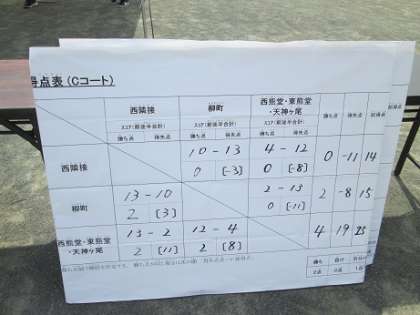 得点表(Cコート)
西隣接 柳町 西熊堂・東熊堂・天神ヶ尾 勝ち点 得失点 総得点
スコア(前後半合計) スコア(前後半合計) スコア(前後半合計)
勝ち点 得失点 勝ち点 得失点 勝ち点 得失点
西隣接 10 - 13 4 - 12 0 -11 14
0 [-3] 0 [-8]
柳町 13 - 10 2 - 13 2 -8 15
2 [3] 0 [-11]
西熊堂・東熊堂・天神ヶ尾 13 - 2 12 - 4 4 19 25
2 [11] 2 [8]
勝ち 負け
2点 0点 1点